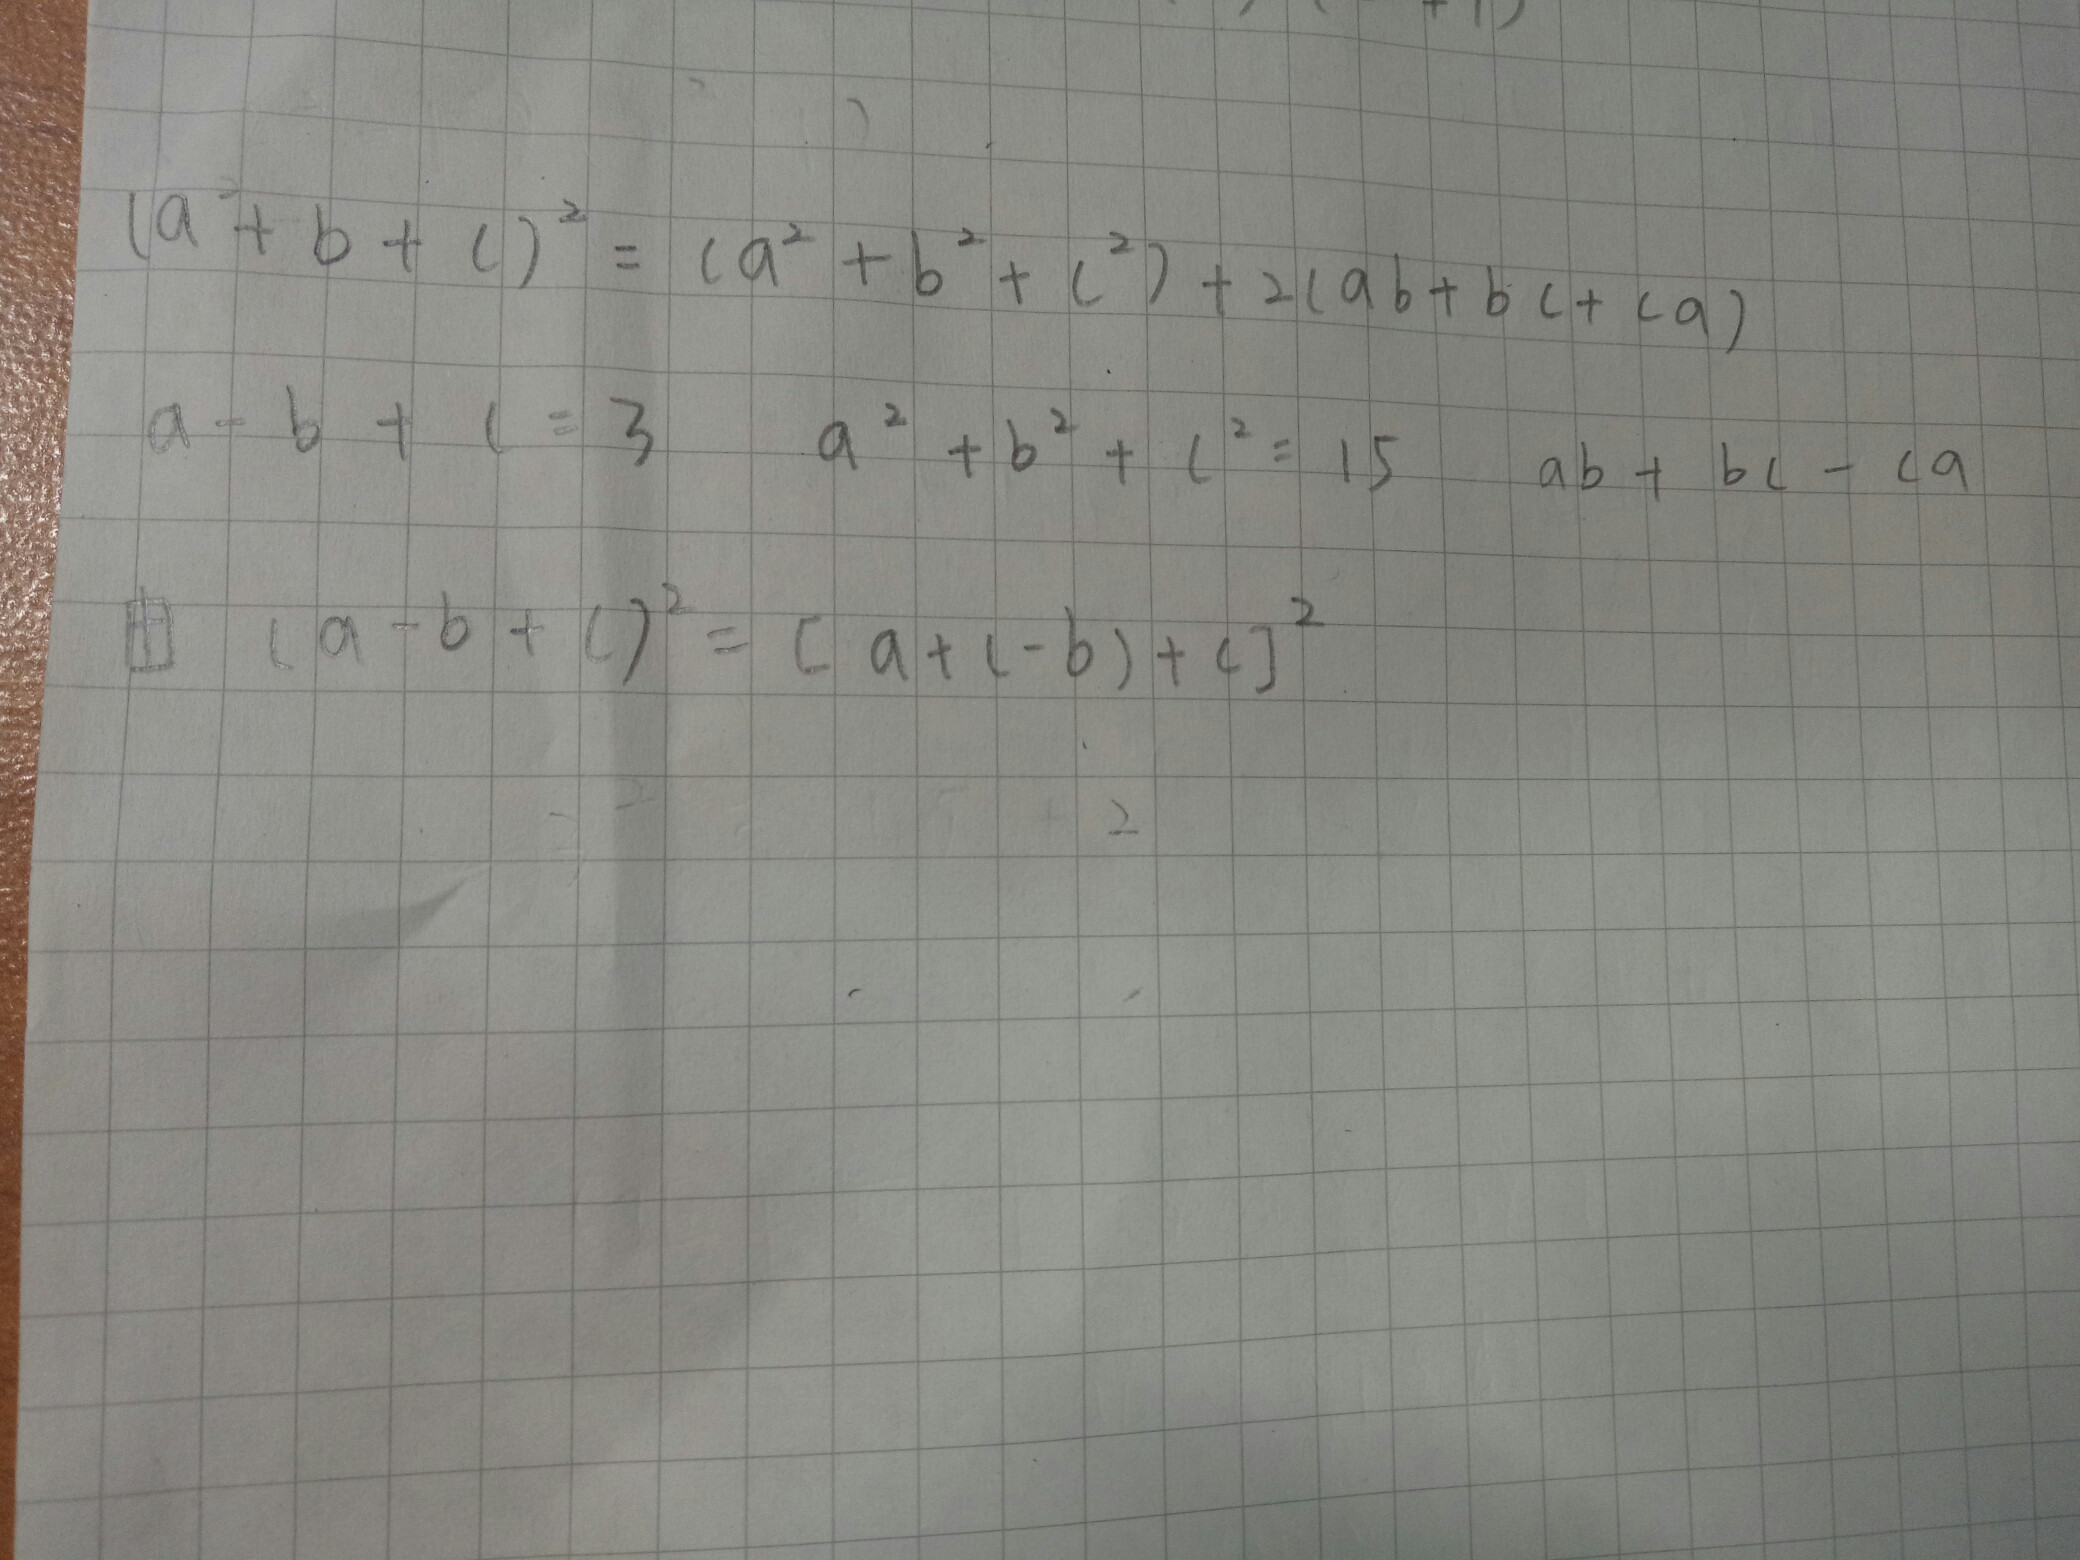 +1)
(a²+b+c)² = (a²+b²+c²)+2(ab+bc+ca)
a-b+c=3 a²+b²+c²=15 ab+bc-ca
(a-b+c)² = [a+(-b)+c]²
2